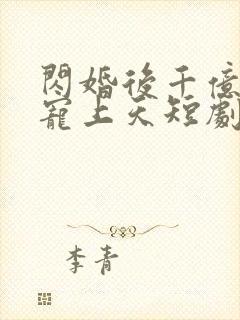 閃婚後千億
寵上天短劇
李青